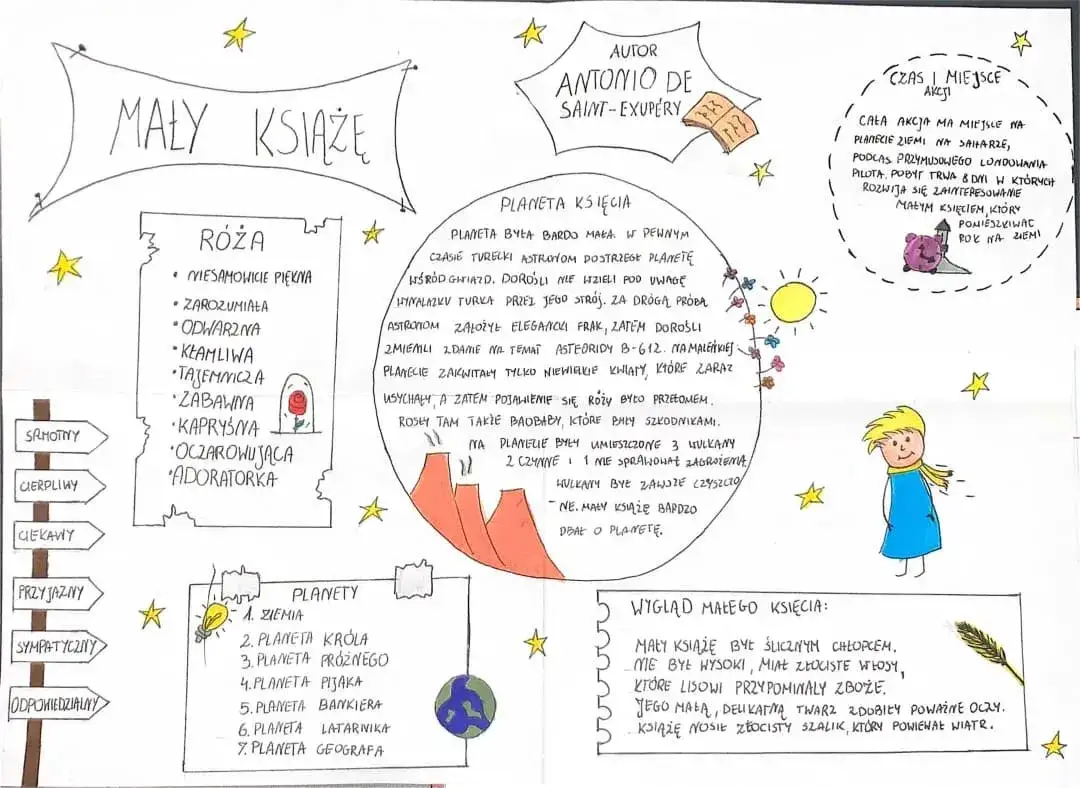 MAŁY KSIĄŻĘ
AUTOR
ANTONIO DE
SAINT-EXUPÉRY
CZAS I MIEJSCE
AKCJI
CAŁA AKCJA MA MIEJSCE NA
PLANECIE ZIEMI NA SAHARZE,
PODCAS PRZYMUSOWEGO LONDOWANIA
PILOTA. POBYT TRWA 8 DNI W KTÓRYCH
ROZWIJA SIĘ ZAINTERESOWANIE
MAŁYM KSIĘCIEM, KTÓRY
POMIESZKIWAĆ
ROK NA ZIEMI
RÓŻA
• NIESAMOWICIE PIĘKNA
• ZAROZUMIAŁA
• ODWAŻNA
• KŁAMLIWA
• TAJEMNICZA
• ZABAWNA
• KAPRYŚNA
• OCZAROWUJĄCA
• ADORATORKA
PLANETA KSIĘCIA
PLANETA BYŁA BARDO MAŁA. W PEWNYM
CZASIE TURECKI ASTRONOM DOSTRZEGŁ PLANETĘ
WŚRÓD GWIAZD. DOROŚLI NIE WZIELI POD UWAGĘ
WYNALAZKU TURKA PRZEZ JEGO STRÓJ. ZA DRÓGĄ PRÓBĄ
ASTRONOM ZAŁOŻYŁ ELEGANCKI FRAK, ZATEM DOROŚLI
ZMIENILI ZDANIE NA TEMAT ASTEORIDY B-612. NA MALEŃKIEJ
PLANECIE ZAKWITAŁY TYLKO NIEWIELKIE KWIATY, KTÓRE ZARAZ
USYCHAŁY, A ZATEM POJAWIENIE SIĘ RÓŻY BYŁO PRZEŁOMEM.
ROSŁY TAM TAKŻE BAOBABY, KTÓRE BYŁY SZKODNIKAMI.
NA PLANECIE BYŁY UMIESZCZONE 3 WULKANY
2 CZYNNE I 1 NIE SPRAWOWAŁ ZAGROŻENIA
WULKANY BYŁ ZAWSZE CZYSZCZO
-NE. MAŁY KSIĄŻĘ BARDZO
DBAŁ O PLANETĘ.
SAMOTNY
CIERPLIWY
CIEKAWY
PRZYJAZNY
SYMPATYCZNY
ODPOWIEDZIALNY
PLANETY
1. ZIEMIA
2. PLANETA KRÓLA
3. PLANETA PRÓŻNEGO
4. PLANETA PIJAKA
5. PLANETA BANKIERA
6. PLANETA LATARNIKA
7. PLANETA GEOGRAFA
WYGLĄD MAŁEGO KSIĘCIA:
MAŁY KSIĄŻĘ BYŁ ŚLICZNYM CHŁOPCEM.
NIE BYŁ WYSOKI, MIAŁ ZŁOCISTE WŁOSY,
KTÓRE LISOWI PRZYPOMINAŁY ZBOŻE.
JEGO MAŁĄ, DELIKATNĄ TWARZ ZDOBIŁY POWAŻNE OCZY.
KSIĄŻĘ NOSIŁ ZŁOCISTY SZALIK, KTÓRY POWIEWAŁ WIATR.